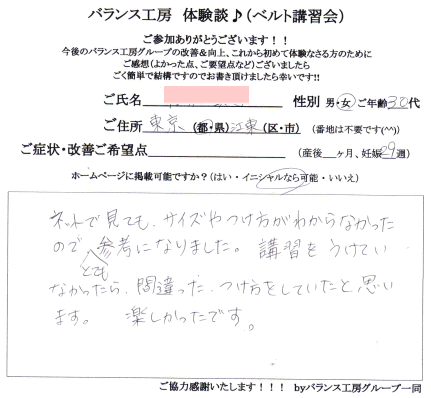 バランス工房 体験談♪(ベルト講習会)
ご参加ありがとうございます!!
今後のバランス工房グループの改善&向上、これから初めて体験なさる方のために
ご感想(よかった点、ご要望点など)ございましたら
ごく簡単で結構ですのでお書き頂けましたら幸いです!!
ご氏名 性別 男・女 ご年齢30代
ご住所 東京(都・県)江東(区・市) (番地は不要です(^^))
ご症状・改善ご希望点 (産後 ヶ月、妊娠29週)
ホームページに掲載可能ですか?(はい・イニシャルなら可能・いいえ)
ネットで見ても、サイズやつけ方がわからなかった
ので、とても参考になりました。講習をうけてい
なかったら、間違った、つけ方をしていたと思い
ます。 楽しかったです。
ご協力感謝いたします!!! byバランス工房グループ一同